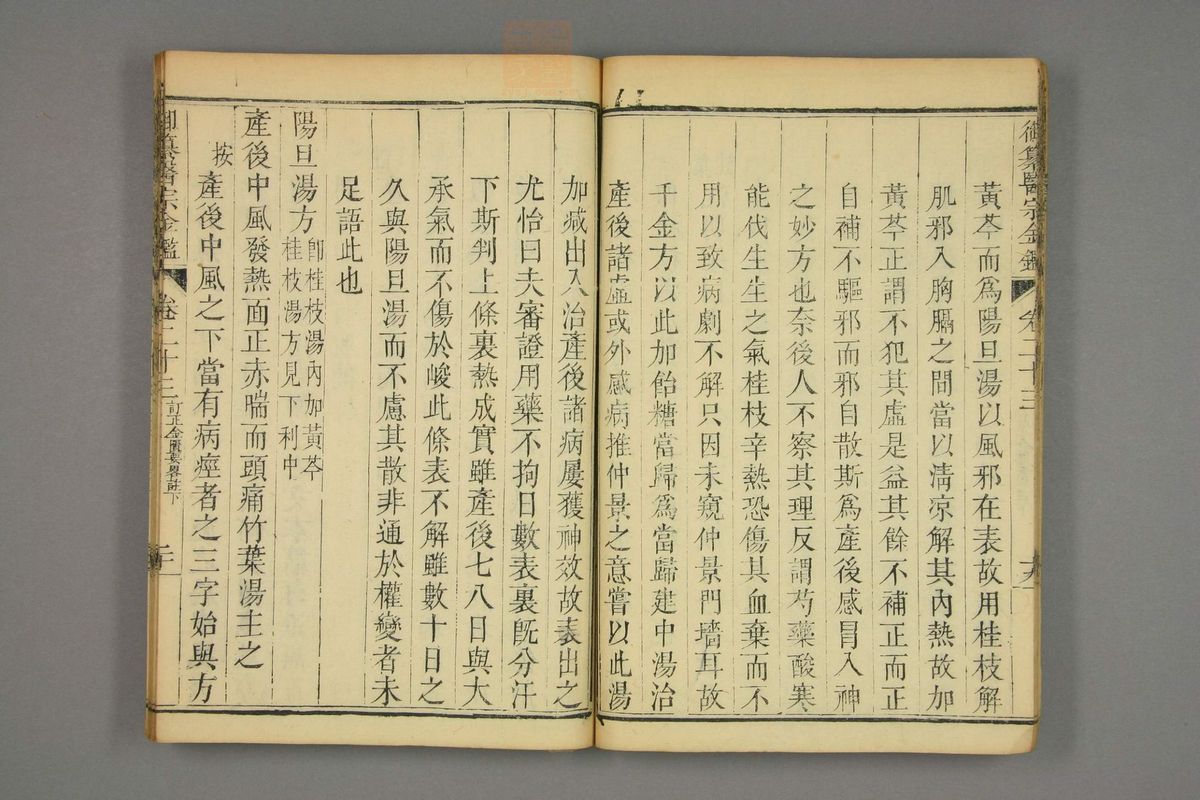 御纂醫宗金鑑 卷二十三
黃芩而爲陽旦湯以風邪在表故用桂枝解
肌邪入胸膈之間當以清凉解其內熱故加
黃芩正謂不犯其虛是益其餘不補正而正
自補不驅邪而邪自散斯爲產後感冒入神
之妙方也奈後人不察其理反謂芍藥酸寒
能伐生生之氣桂枝辛熱恐傷其血棄而不
用以致病劇不解只因未窺仲景門墻耳故
千金方以此加飴糖當歸爲當歸建中湯治
產後諸虛或外感病推仲景之意嘗以此湯
加減出入治產後諸病屢獲神效故表出之
尤怡曰夫審證用藥不拘日數表裏旣分汗
下斯判上條裏熱成實雖產後七八日與大
承氣而不傷於峻此條表不解雖數十日之
久與陽旦湯而不慮其散非通於權變者未
足語此也
陽旦湯方 卽桂枝湯內加黃芩
桂枝湯方見下利中
產後中風發熱面正赤喘而頭痛竹葉湯主之
按 產後中風之下當有病痙者之三字始與方
御纂醫宗金鑑 卷二十三 訂正金匱要畧註下 二十